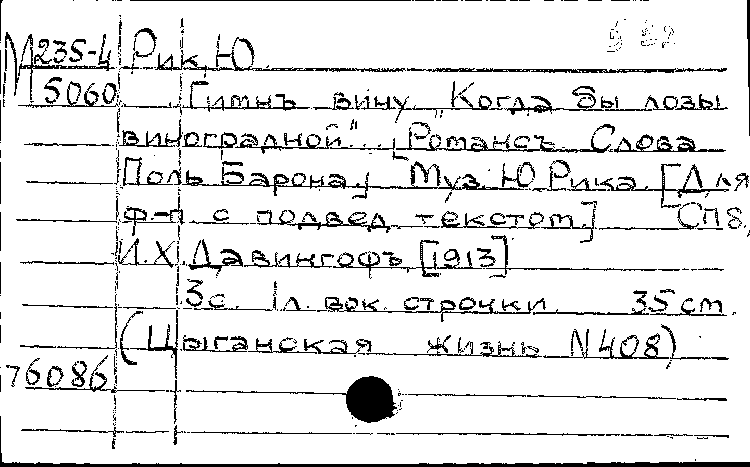 М 235-4 Рик, Ю.
5060 Гимнъ вину "Когда бы лозы
виноградной". [Романсъ Слова
Поль Барона.] Муз. Ю Рика. [Для
ф-п. с подвед. текстом.] СПб,
И.Х. Давингофъ, [1913]
3с. 1л. вок. строчки 35 см.
(Цыганская жизнь N 408)
76086